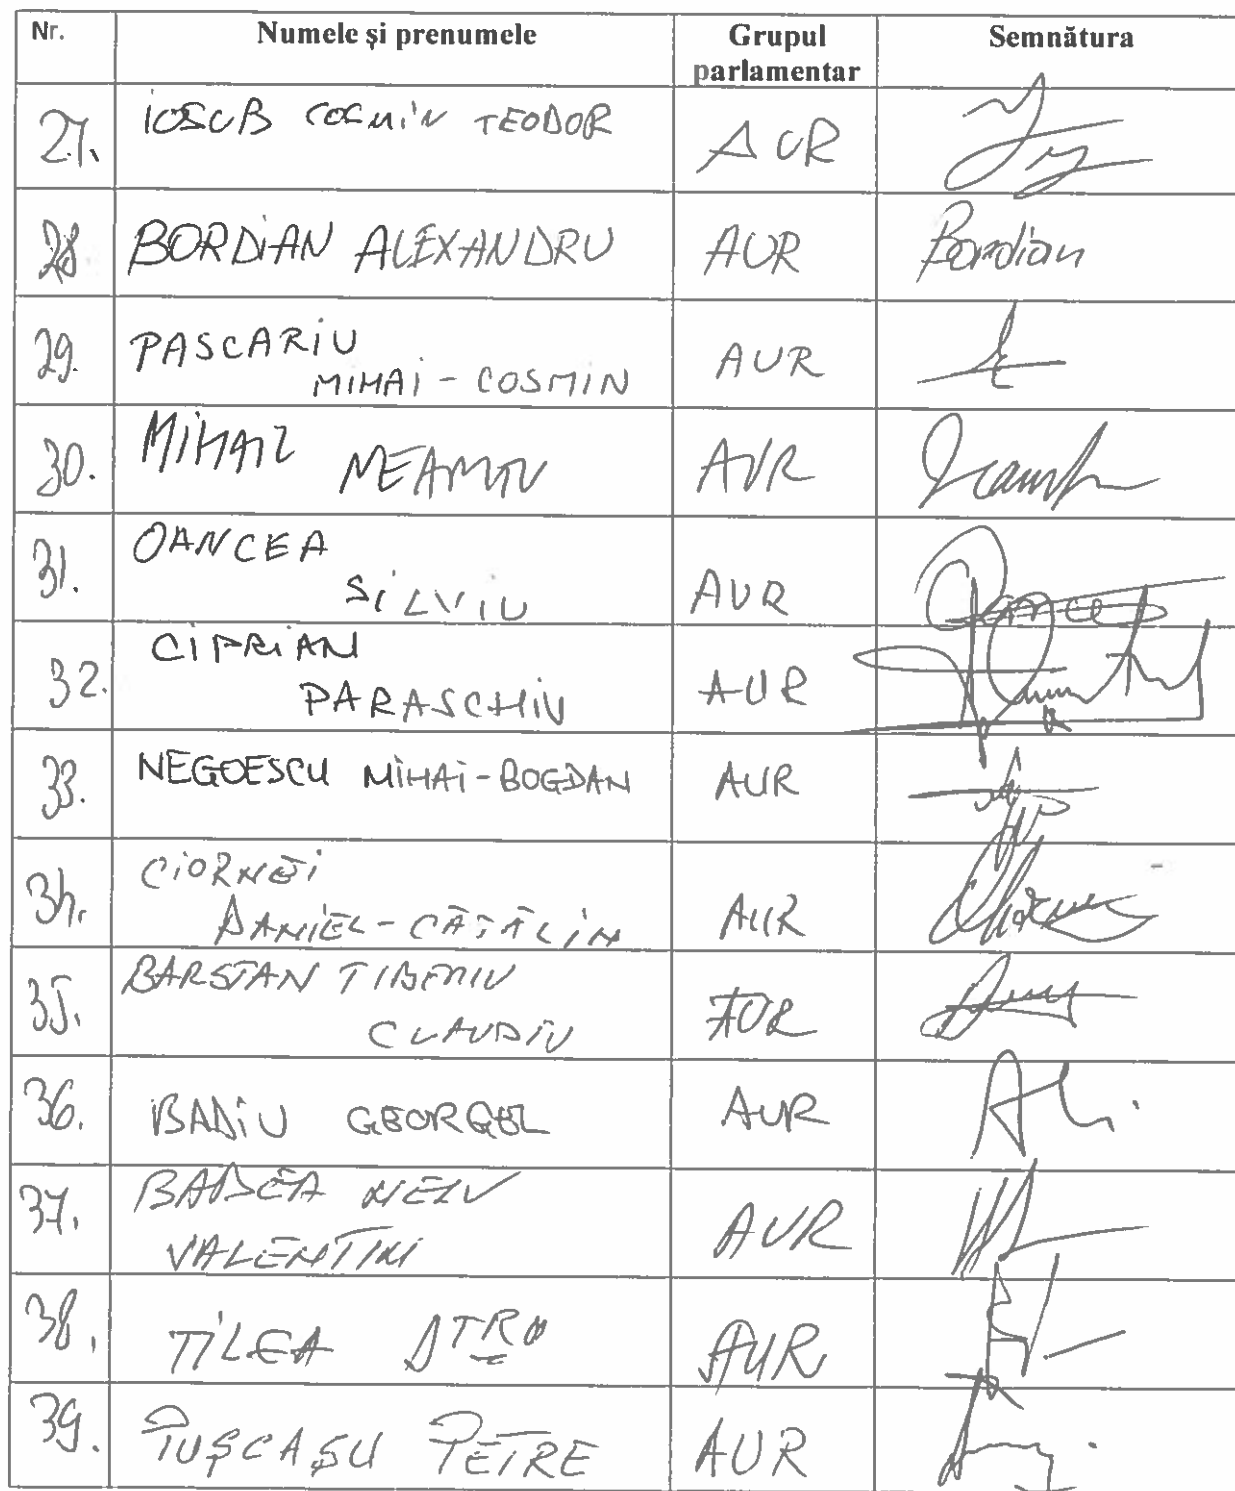 Nr. Numele și prenumele Grupul parlamentar Semnătura
27. IOSUB COSMIN TEODOR AUR
28 BORDIAN ALEXANDRU AUR Bordian
29. PASCARIU
MIHAI - COSMIN AUR
30. MIHAIL NEAMTU AUR
31. OANCEA
SILVIU AUR
32. CIPRIAN
PARASCHIV AUR
33. NEGOESCU MIHAI-BOGDAN AUR
34. CIORNEI
DANIEL - CĂTĂLIN AUR
35. BARSTAN TIBERIU
CLAUDIU AUR
36. BADIU GEORGEL AUR
37. BADEA NELU
VALENTIN AUR
38. TILEA AUR
39. PUȘCAȘU PETRE AUR